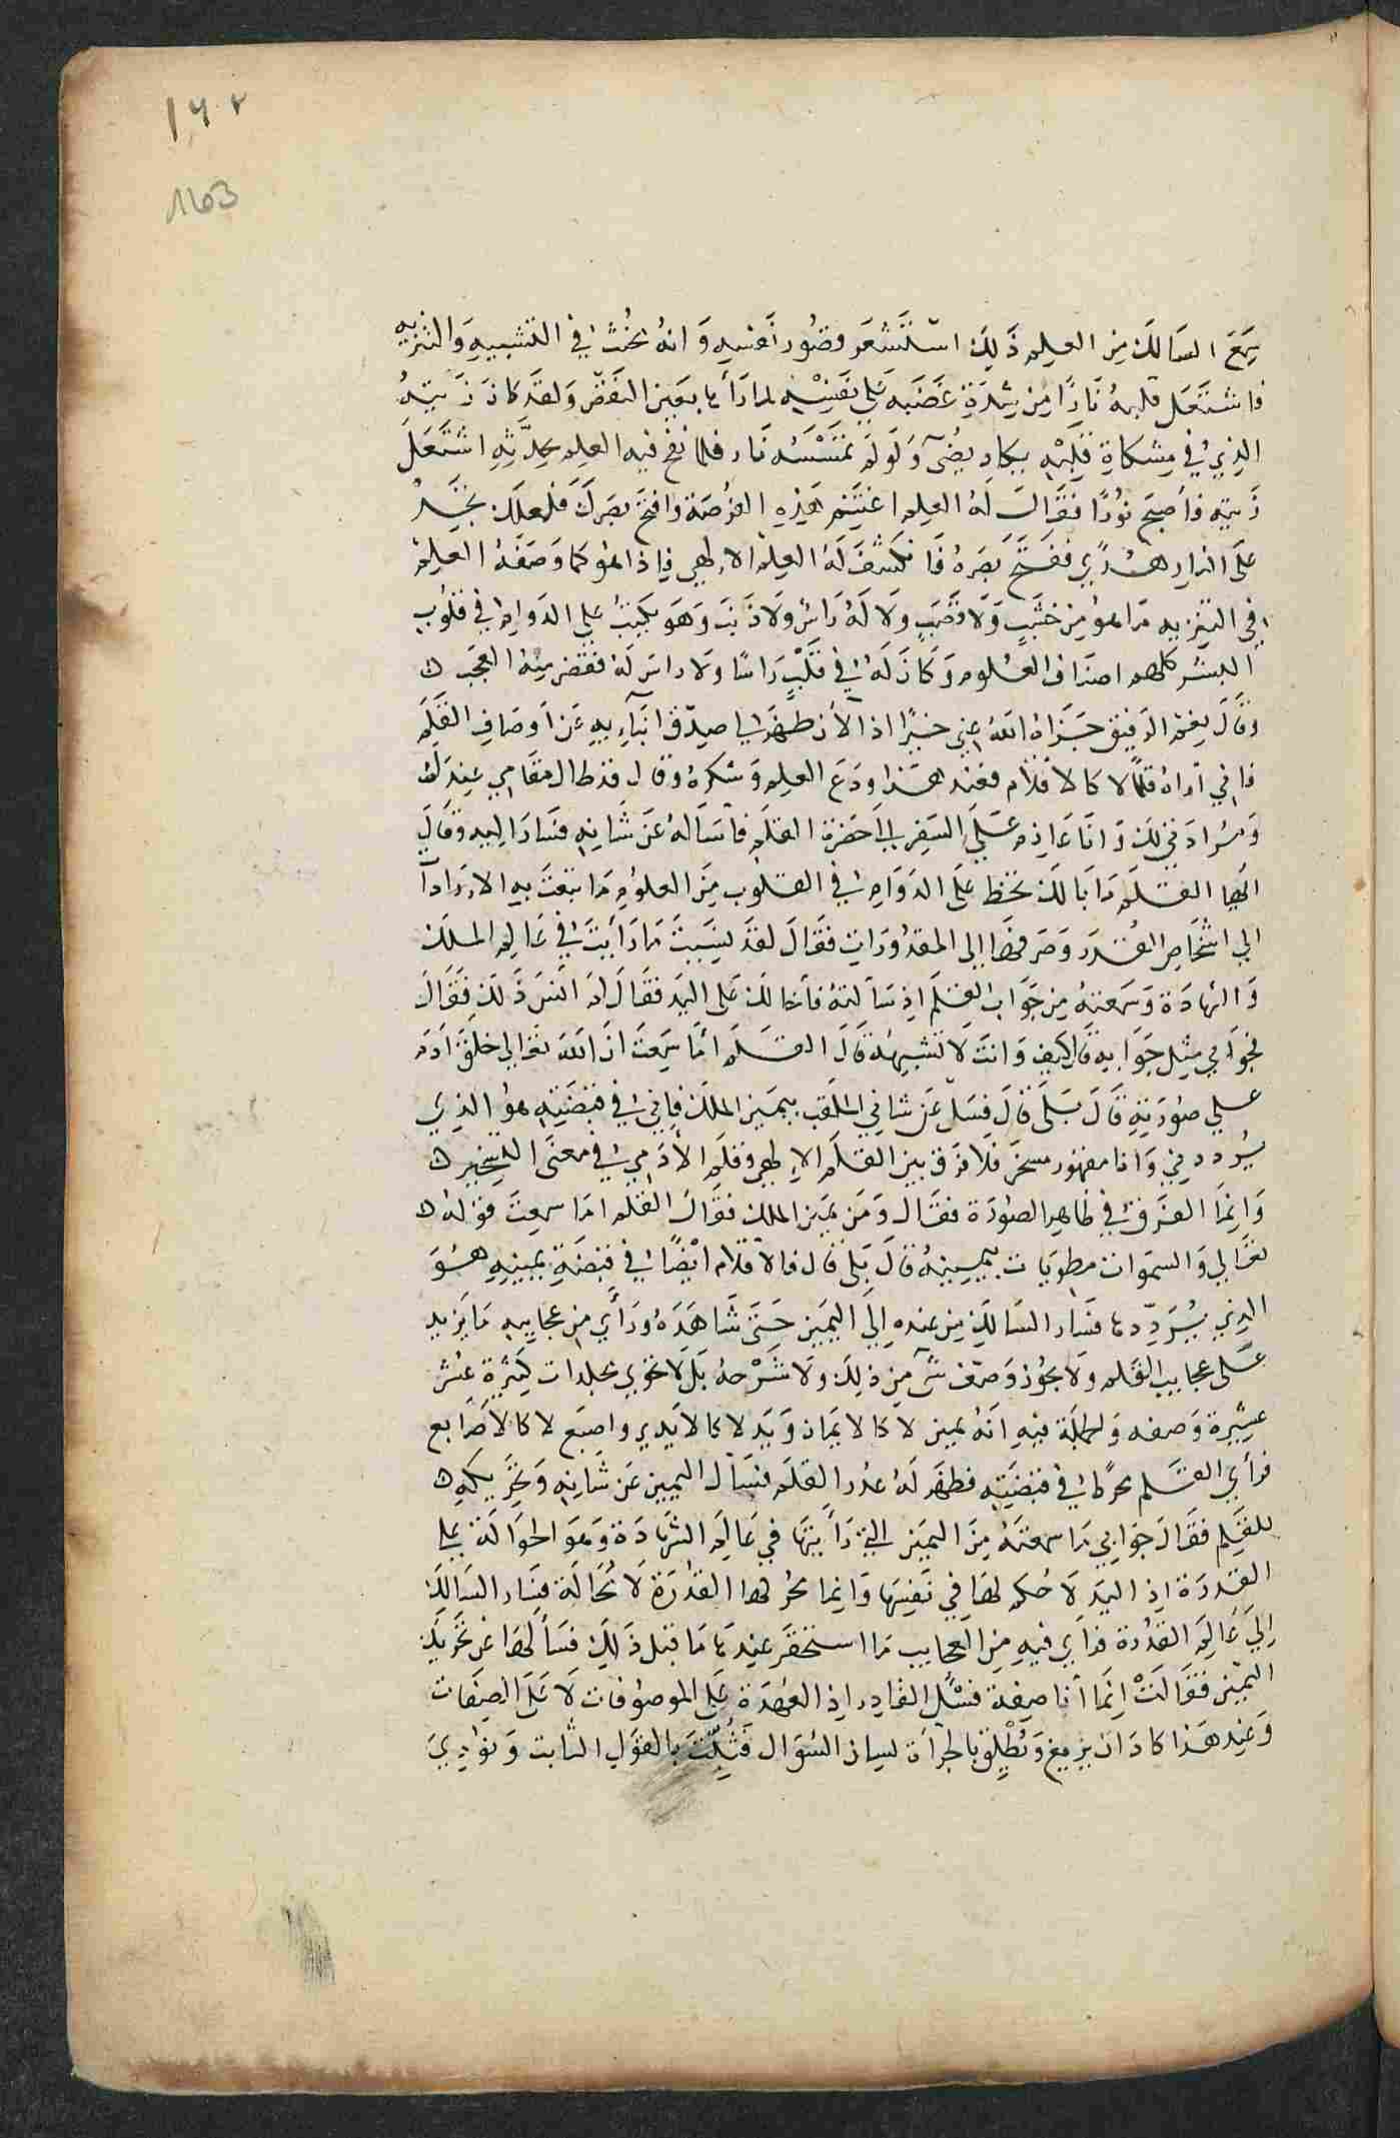 ١٦٢
163
سمع السالك من العلم ذلك استشعر قصور نفسه وانه مخنث في التشبيه والتنزيه
فاشتعل قلبه نارا من شدة غضبه على نفسه لما رأها بعين النقص ولقد كان زيته
الذي في مشكاة قلبه يكاد يضيء ولو لم تمسسه نار فلما نفخ فيه العلم بحدته اشتعل
زيته فأصبح نورا فقال له العلم اغتنم هذه الفرصة وافتح بصرك فلعلك تجد
على النار هدي ففتح بصره فانكشف له العلم الالهي فإذا هو كما وصفه العلم
في التنزيه ما هو من خشب ولا قصب ولا له راس ولا ذنب وهو يكتب على الدوام في قلوب
البشر كلهم اصناف العلوم وكان له في قلب راسا ولا راس له فقضى منه العجب
وقال نعم الرفيق جزاه الله عني خيرا اذ الآن ظهر لي صدق انبآيه عن اوصاف القلم
فاني أراه قلما لا كالاقلام فعند هذا ودع العلم وشكره وقال قد طال مقامي عندك
ومرادتي لك وانا عازم على السفر الى حضرة القلم فأساله عن شانه فسار اليه وقال
ايها القلم ما بالك تخط على الدوام في القلوب من العلوم ما تبعث به الارادآ
الي اشخاص القدر وصرفها إلى المقدورات فقال لقد نسيت ما رأيت في عالم الملك
والشهادة وسمعته من جواب القلم اذ سألته فأحالك على اليد فقال لم انس ذلك فقال
فجوابي مثل جوابه قال كيف وانت لا تشبهه قال القلم اما سمعت ان الله تعالى خلق ادم
على صورته قال بلى قال فسل عن شاني الملقب بيمين الملك فإني في قبضته هو الذي
يرددني وانا مقهور مسخر فلا فرق بين القلم الالهي وقلم الأدمي في معنى التسخير
وانما الفرق في ظاهر الصورة فقال ومن يمين الملك فقال القلم اما سمعت قوله
تعالى والسموات مطويات بيمينه قال بلى قال فالاقلام ايضا في قبضة يمينه هو
الذي يرددها فسار السالك من عنده إلى اليمين حتى شاهده ورأي من عجايبه ما يزيد
على عجايب القلم ولا يجوز وصف شيء من ذلك ولا شرحه بل لا تحوي مجلدات كثيرة عشر
عشيرة وصفه والجملة فيه انه يمين لا كالايمان ويد لا كالايدي واصبع لا كالاصابع
فرأي القلم محركا في قبضته فظهر له عذر القلم فسأل اليمين عن شانه وتحريكه
للقلم فقال جوابي ما سمعته من اليمين التي رأيتها في عالم الشهادة وهو الحوالة على
القدرة اذ اليد لا حكم لها في نفسها وانما محركها القدرة لا محالة فسار السالك
إلي عالم القدرة فرأي فيه من العجايب ما استحقر عندها ما قبل ذلك فسألها عن تحريك
اليمين فقالت إنما أنا صفة فسئل القادر اذ العهدة على الموصوفات لا على الصفات
وعند هذا كاد ان يزيغ ويطلق بالجرأة لسان السؤال فثبت بالقول الثابت ونودي